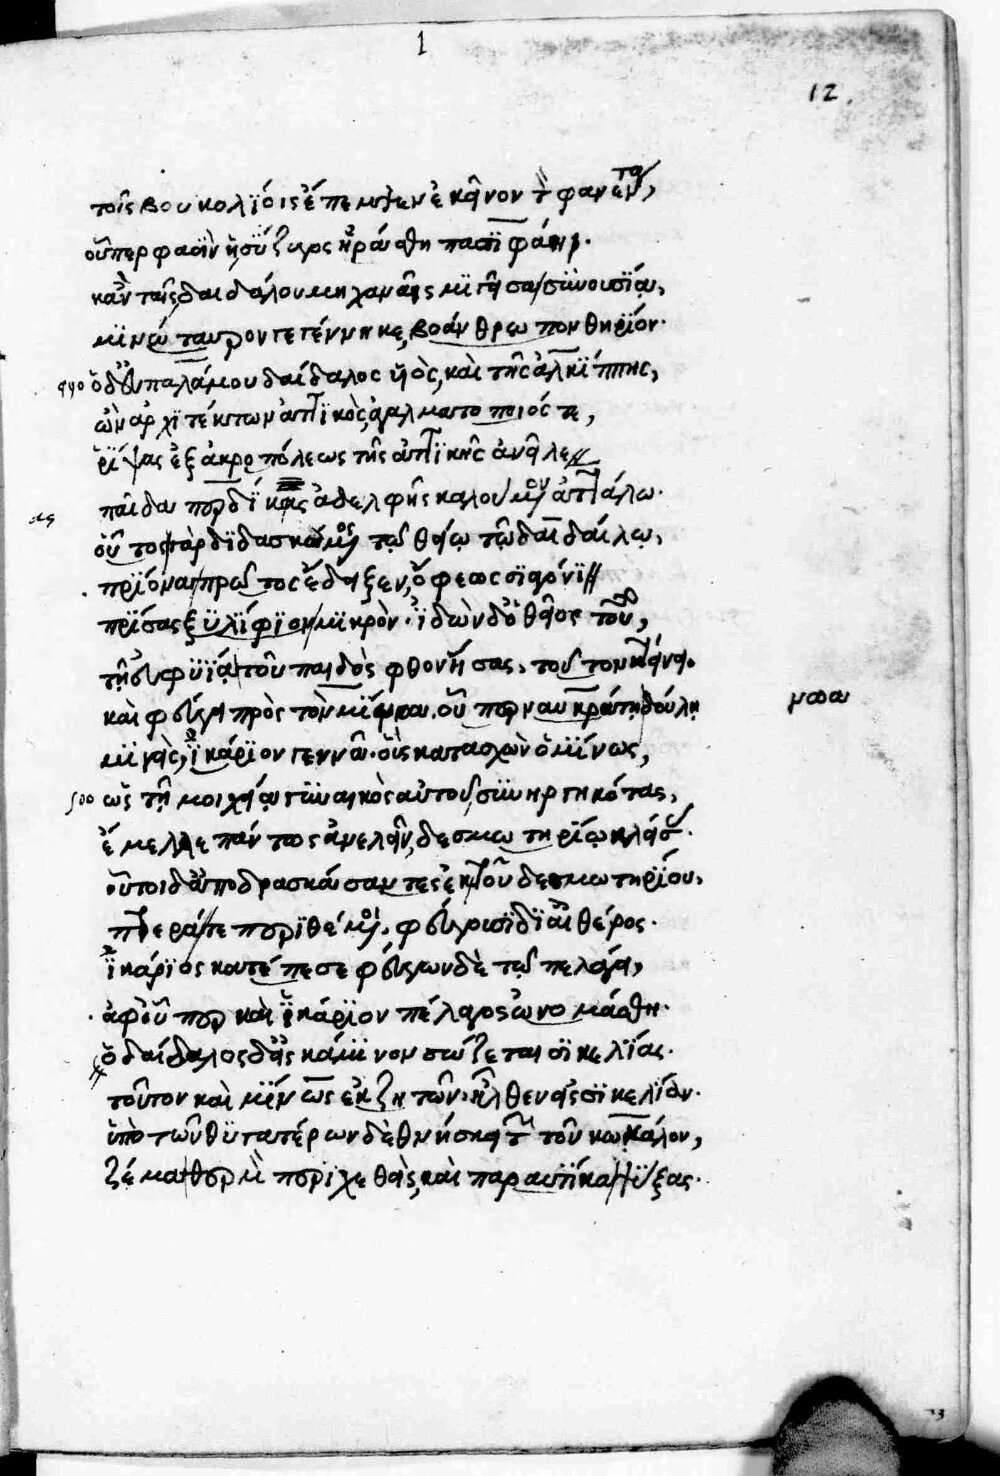 1
12.
τοῖς βουκολίοις ἔπεμψεν ἐκεῖνον τὸν φανέντα,
οὗπερ φασὶν ἡ σύζυγος ἠράσθη πασιφάη.
κἀν ταῖς δαιδάλου μηχαναῖς μιγεῖσα συνουσίᾳ,
μινώταυρον γεγέννηκε, βοάνθρωπον θηρίον.
490 ὁ δ' εὐπαλάμου δαίδαλος υἱὸς, καὶ τῆς ἀλκίππης,
ὢν ἀρχιτέκτων ἀττικὸς, ἀγαλματοποιός τε,
ῥίψας ἐξ ἀκροπόλεως τῆς ἀττικῆς ἀνεῖλε
παῖδα περδίκας ἀδελφῆς καλούμενον ἀτταλω.
οὗτος γὰρ διδασκόμενος τῷ θείῳ τῷ δαιδάλῳ,
πρίονα πρῶτος ἔδειξεν, ὄφεως σιαγόνι
πρίσας ξυλίφιον μικρόν. ἰδὼν δ' ὁ θεῖος τοῦτο,
τῇ εὐφυΐᾳ τοῦ παιδὸς φθονήσας, τοῦτον κτείνει.
καὶ φεύγει πρὸς τὸν μίνωα. οὗπερ ναυκράτῃ δούλῃ
μινωα
μιγεὶς, ἰκάριον γεννᾷ. οἷς κατασχὼν ὁ μίνως,
500 ὡς τῇ μοιχείᾳ γυναικὸς αὐτοῦ συνηργηκότας,
ἔμελλε πάντως ἀνελεῖν, δεσμωτηρίῳ κλείσας.
οὗτοι δ' ἀποδρασκάσαντες ἐκ τοῦ δεσμωτηρίου,
πτερά τε περιθέμενοι, φεύγουσι δι' αἰθέρος.
ἰκάριος κατέπεσε φεύγων δὲ τῷ πελάγει,
ἀφ' οὗπερ καὶ ἰκάριον πέλαγος ὠνομάσθη.
ὁ δαίδαλος δ' εἰς κάμινον σώζεται σικελίας.
τοῦτον καὶ μίνως ἐκζητῶν, ἦλθεν εἰς σικελίαν.
ὑπὸ τῶν θυγατέρων δὲ θνήσκει τῶν τοῦ κωκάλου,
ζέματι θερμῷ περιχεθεὶς, καὶ παραυτίκα ψύξας.